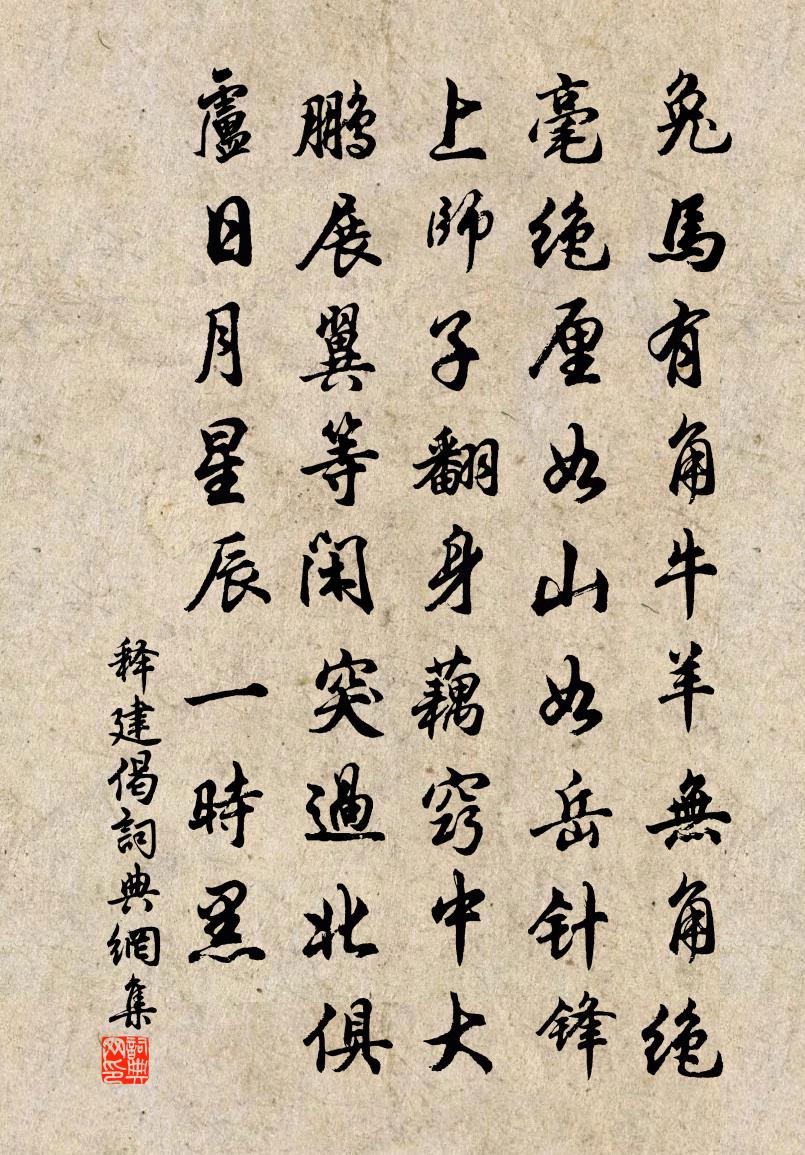 兔馬有角牛羊無角絶
毫絶厘如山如岳针锋
上師子翻身藕竅中大
鹏展翼等闲突過北俱
盧日月星辰一時黑
释建偈詞典網集
詞典网印